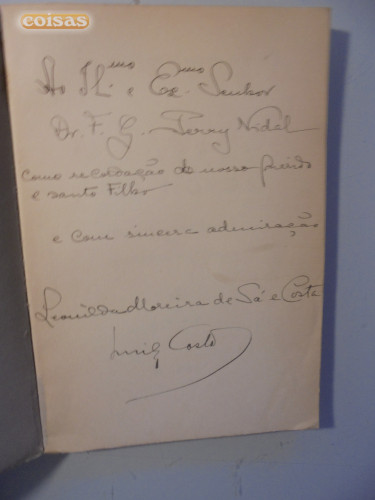 coisas
Ao Il.mo e Ex.mo Senhor
Dr. F. G. Perry Vidal
como recordação do nosso querido
e santo Filho
e com sincera admiração
Leonilda Moreira de Sá e Costa
Luiz Costa